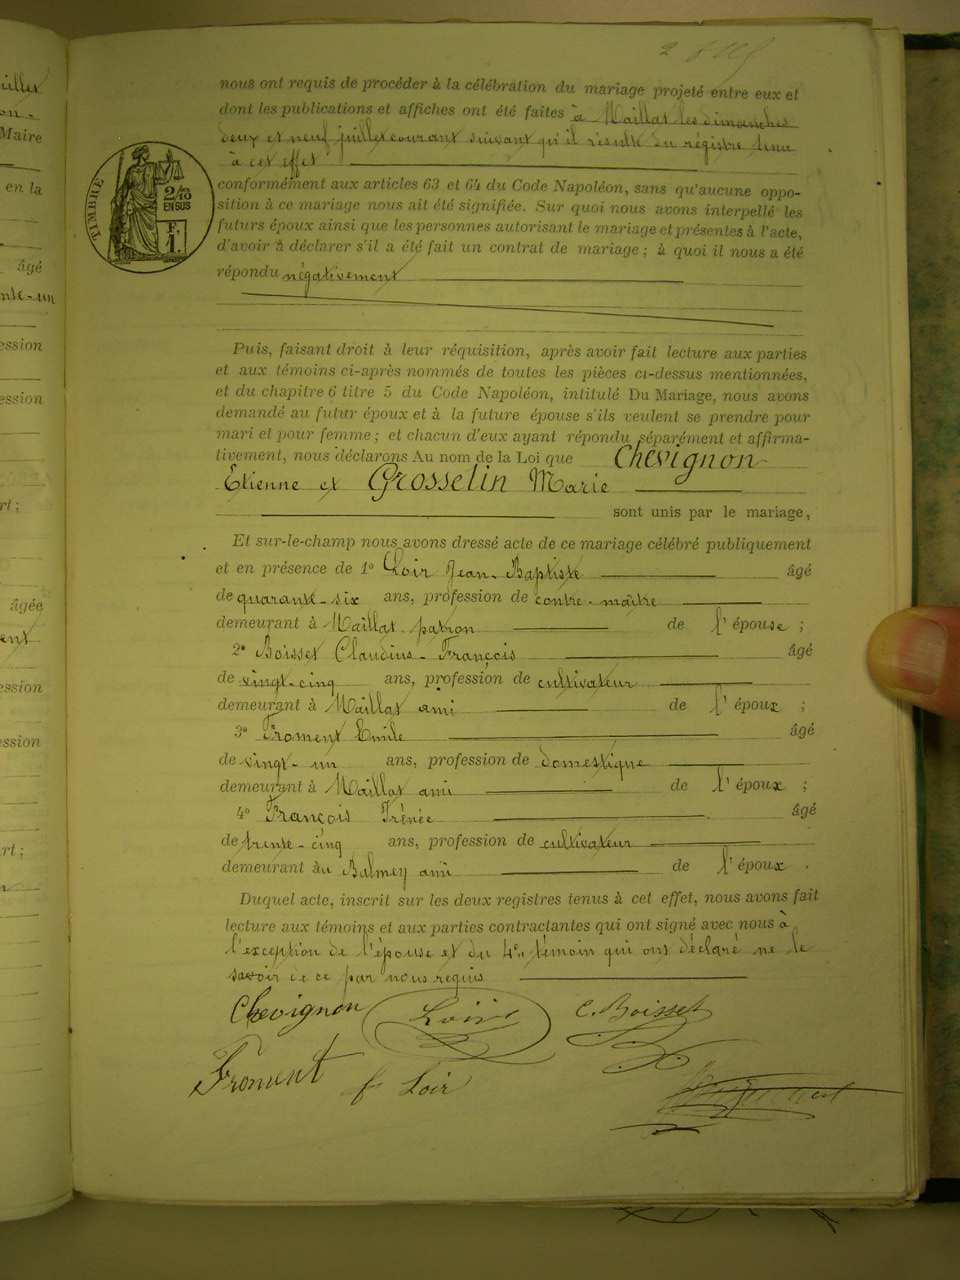 nous ont requis de procéder à la célébration du mariage projeté entre eux et
dont les publications et affiches ont été faites à Maillat les dimanches
deux et neuf juillet courant suivant qu'il résulte du régistre tenu
à cet effet
conformément aux articles 63 et 64 du Code Napoléon, sans qu'aucune oppo-
sition à ce mariage nous ait été signifiée. Sur quoi nous avons interpellé les
futurs époux ainsi que les personnes autorisant le mariage et présentes à l'acte,
d'avoir à déclarer s'il a été fait un contrat de mariage ; à quoi il nous a été
répondu négativement
TIMBRE
2/10
EN SUS
F.
1.
Puis, faisant droit à leur réquisition, après avoir fait lecture aux parties
et aux témoins ci-après nommés de toutes les pièces ci-dessus mentionnées,
et du chapitre 6 titre 5 du Code Napoléon, intitulé Du Mariage, nous avons
demandé au futur époux et à la future épouse s'ils veulent se prendre pour
mari et pour femme ; et chacun d'eux ayant répondu séparément et affirma-
tivement, nous déclarons Au nom de la Loi que Chevignon
Etienne et Grosselin Marie
sont unis par le mariage,
Et sur-le-champ nous avons dressé acte de ce mariage célébré publiquement
et en présence de 1º Loir Jean-Baptiste âgé
de quarante-six ans, profession de contre-maître
demeurant à Maillat patron de l'épouse ;
2º Boisset Claudius-François âgé
de vingt-cinq ans, profession de cultivateur
demeurant à Maillat ami de l'époux ;
3º Froment Emile âgé
de vingt-un ans, profession de domestique
demeurant à Maillat ami de l'époux ;
4º François Irénée âgé
de trente-cinq ans, profession de cultivateur
demeurant àu Balmey ami de l'époux .
Duquel acte, inscrit sur les deux registres tenus à cet effet, nous avons fait
lecture aux témoins et aux parties contractantes qui ont signé avec nous à
l'exception de l'épouse et du 4e témoin qui ont déclaré ne le
savoir de ce par nous requis
Chevignon Loir C. Boisset
Froment f Loir